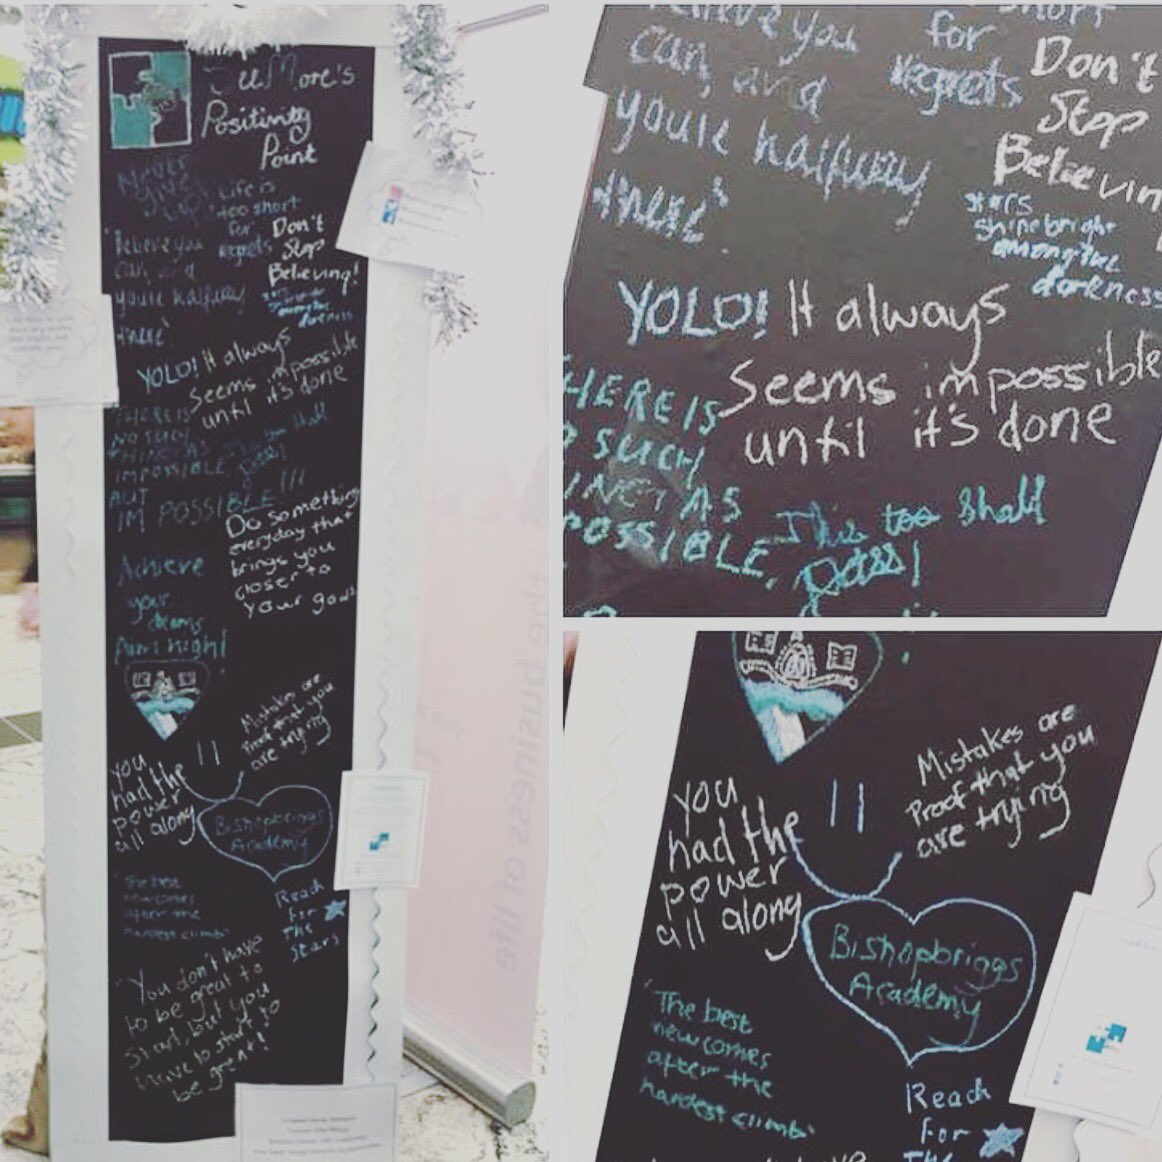 SeeMore's
Positivity
Point
Never
give
up!
Life is
too short
for
regrets
Don't
Stop
Believing!
"Believe you
can, and
you're halfway
there"
stars
shine bright
among the
darkness
YOLO!
It always
seems impossible
until it's done
THERE IS
NO SUCH
THING AS
IMPOSSIBLE,
BUT
IM POSSIBLE!!!
This too shall
pass!
Do something
everyday that
brings you
closer to
your goals
Achieve
your
dreams
Aim high!
Mistakes are
Proof that you
are trying
you
had the
power
all along
Bishopbriggs
Academy
"The best
view comes
after the
hardest climb"
Reach
for
THE
stars
"You don't have
to be great to
start, but you
have to start to
be great!
the business of life
believe you
can, and
you're halfway
there"
short
for
regrets
Don't
Stop
Believin
stars
shine bright
among the
darkness
YOLO! It always
seems impossible
until it's done
HERE IS
SUCH
ING AS
POSSIBLE,
This too shall
pass!
you
had the
power
all along
Mistakes are
Proof that you
are trying
Bishopbriggs
Academy
"The best
view comes
after the
hardest climb"
Reach
for
THE